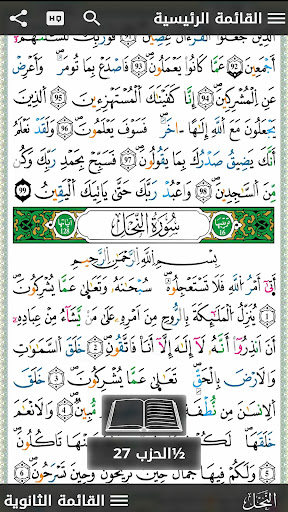 القائمة الرئيسية
HQ
ٱلَّذِينَ جَعَلُوا۟ ٱلْقُرْءَانَ عِضِينَ ۝ فَوَرَبِّكَ لَنَسْـَٔلَنَّهُمْ
أَجْمَعِينَ 92 عَمَّا كَانُوا۟ يَعْمَلُونَ 93 فَٱصْدَعْ بِمَا تُؤْمَرُ وَأَعْرِضْ
عَنِ ٱلْمُشْرِكِينَ 94 إِنَّا كَفَيْنَٰكَ ٱلْمُسْتَهْزِءِينَ 95 ٱلَّذِينَ
يَجْعَلُونَ مَعَ ٱللَّهِ إِلَٰهًا ءَاخَرَ فَسَوْفَ يَعْلَمُونَ 96 وَلَقَدْ نَعْلَمُ
أَنَّكَ يَضِيقُ صَدْرُكَ بِمَا يَقُولُونَ 97 فَسَبِّحْ بِحَمْدِ رَبِّكَ وَكُن
مِّنَ ٱلسَّٰجِدِينَ 98 وَٱعْبُدْ رَبَّكَ حَتَّىٰ يَأْتِيَكَ ٱلْيَقِينُ 99
سُورَةُ ٱلنَّحْلِ
بِسْمِ ٱللَّهِ ٱلرَّحْمَٰنِ ٱلرَّحِيمِ
أَتَىٰٓ أَمْرُ ٱللَّهِ فَلَا تَسْتَعْجِلُوهُ سُبْحَٰنَهُۥ وَتَعَٰلَىٰ عَمَّا يُشْرِكُونَ 1
يُنَزِّلُ ٱلْمَلَٰٓئِكَةَ بِٱلرُّوحِ مِنْ أَمْرِهِۦ عَلَىٰ مَن يَشَآءُ مِنْ عِبَادِهِۦٓ
أَنْ أَنذِرُوٓا۟ أَنَّهُۥ لَآ إِلَٰهَ إِلَّآ أَنَا۠ فَٱتَّقُونِ 2 خَلَقَ ٱلسَّمَٰوَٰتِ
وَٱلْأَرْضَ بِٱلْحَقِّ تَعَٰلَىٰ عَمَّا يُشْرِكُونَ 3 خَلَقَ
ٱلْإِنسَٰنَ مِن نُّطْفَةٍ مُّبِينٌ 4 وَٱلْأَنْعَٰمَ
خَلَقَهَا تَأْكُلُونَ
5 وَلَكُمْ فِيهَا جَمَالٌ حِينَ تُرِيحُونَ وَحِينَ تَسْرَحُونَ 6
½الحزب 27
القائمة الثانوية
النحل